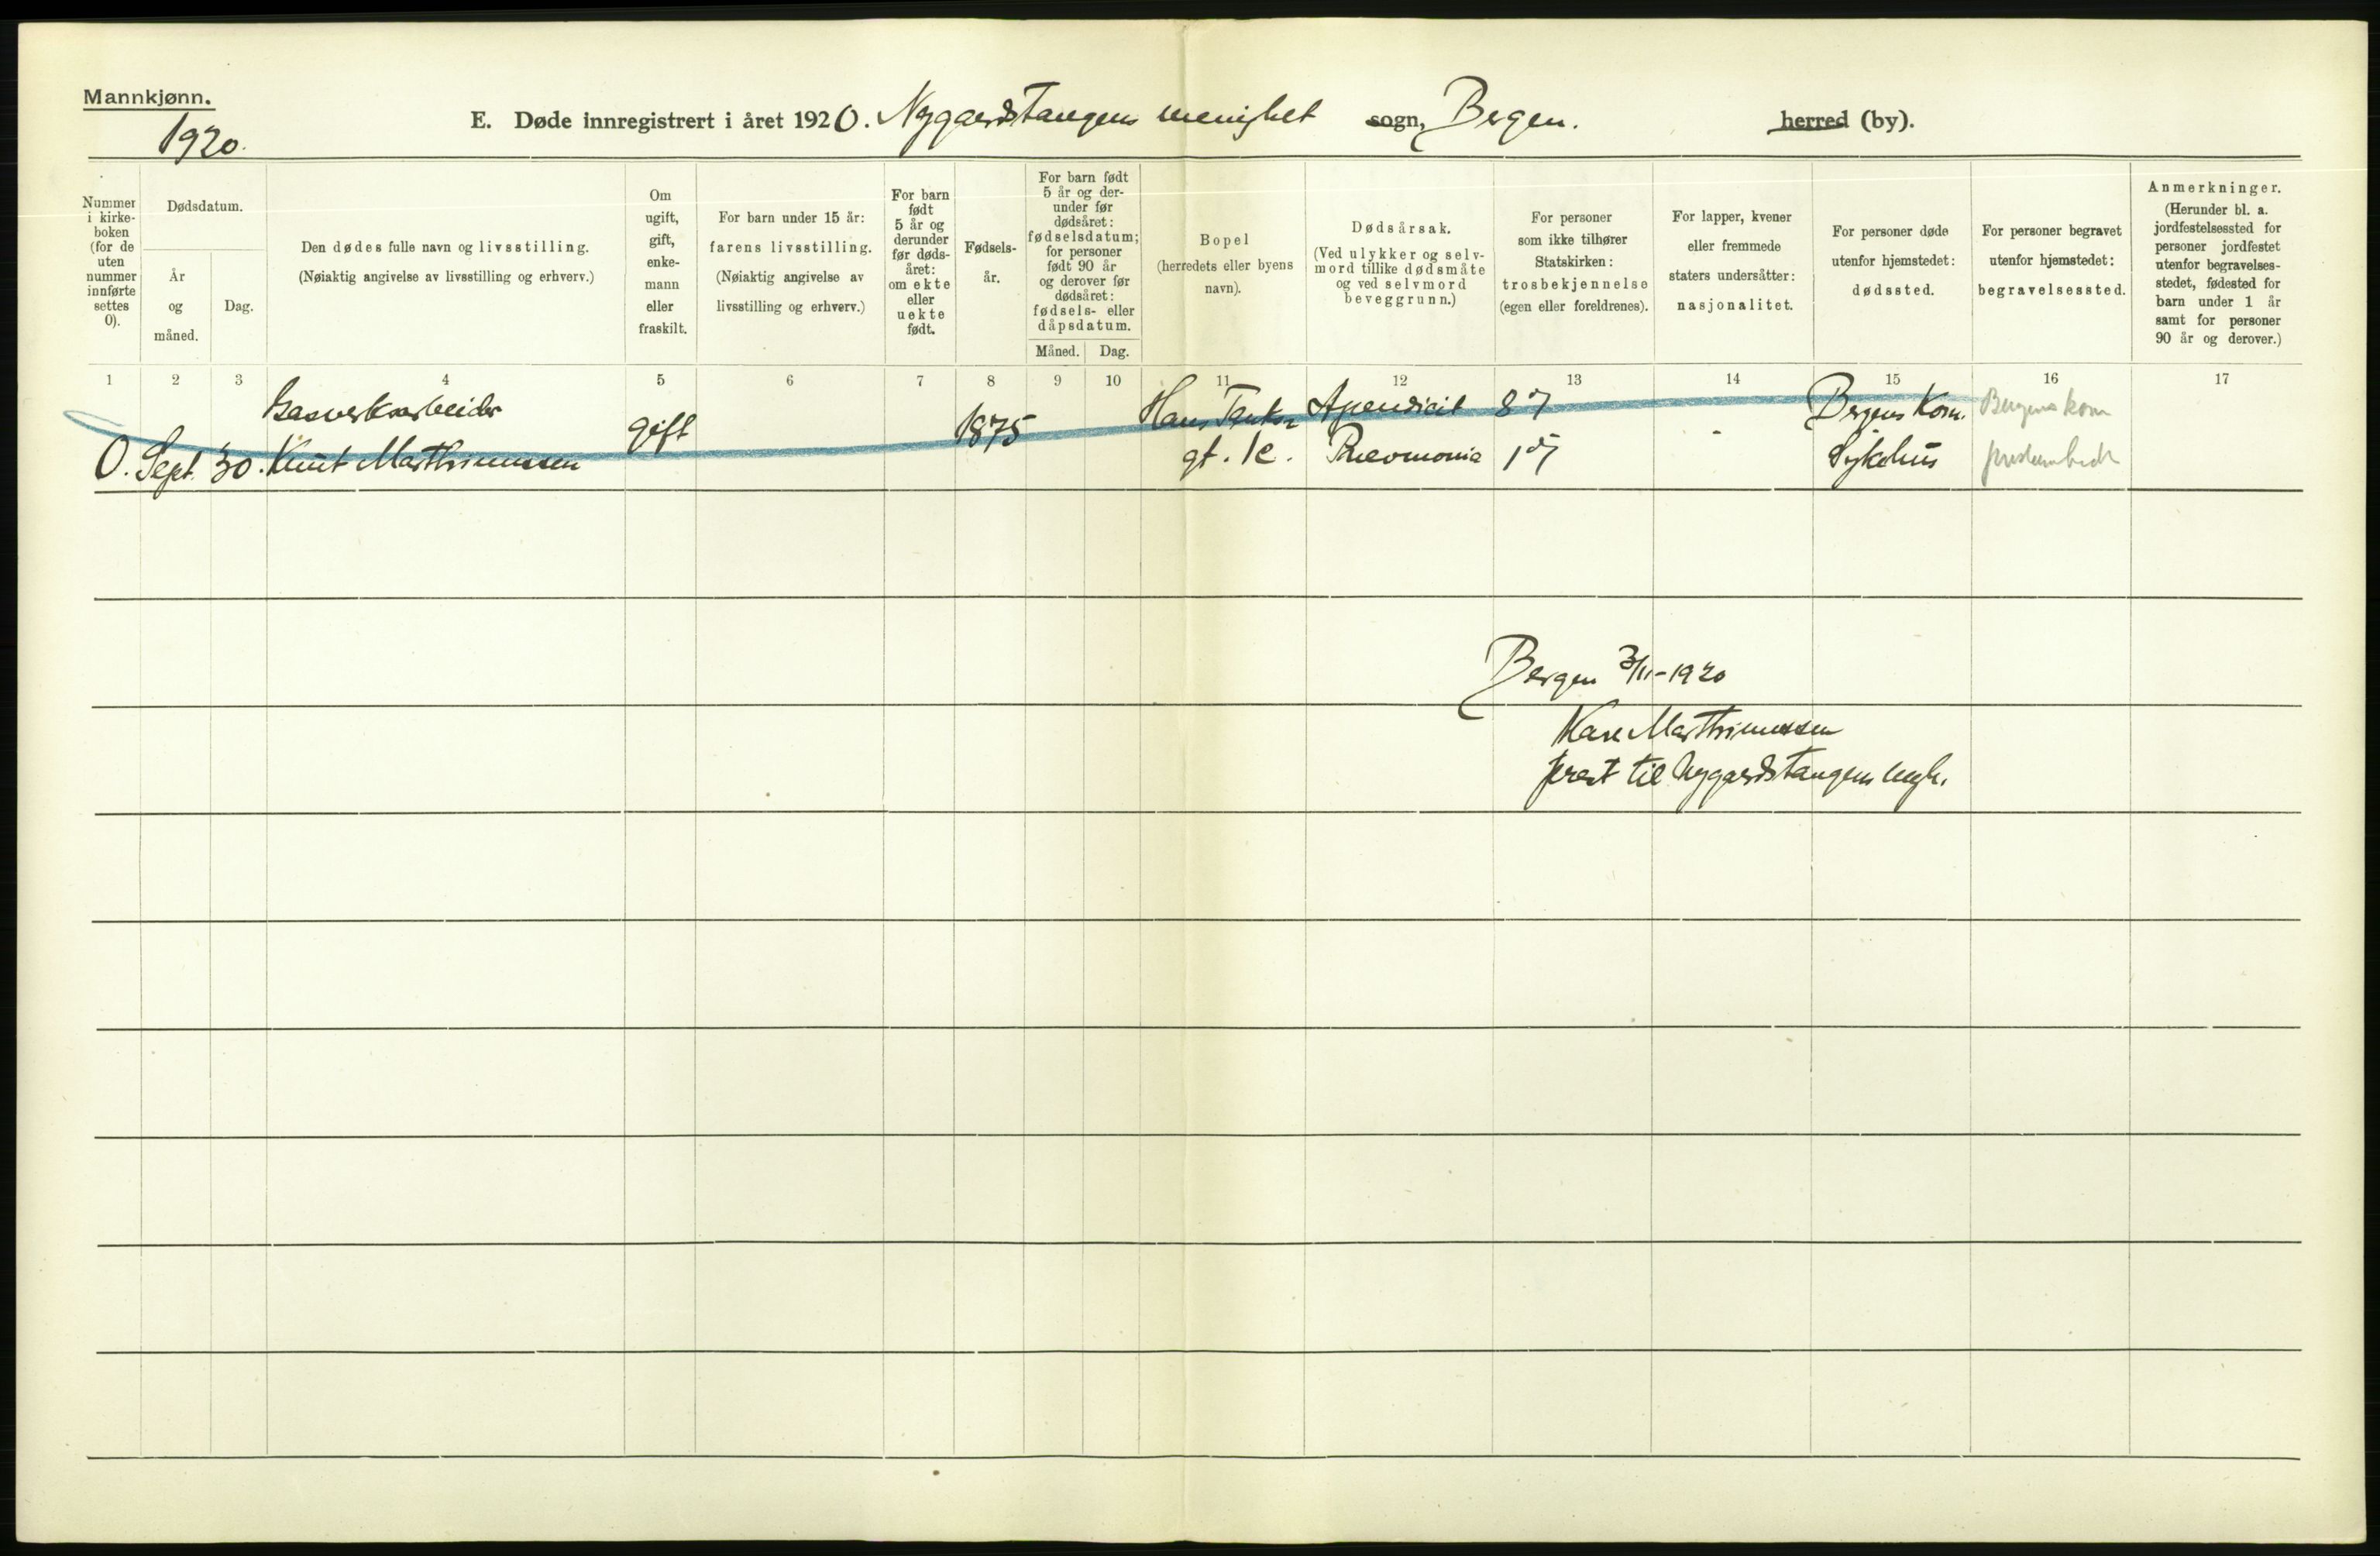 Mannkjønn.
1920.
E. Døde innregistrert i året 1920. Nygaardstangens menighet sogn, Bergen. herred (by).
Nummer i kirke-
boken
(for de
uten
nummer
innførte
settes
0).
Dødsdatum.
År
og
måned.
Dag.
Den dødes fulle navn og livsstilling.
(Nøiaktig angivelse av livsstilling og erhverv.)
Om
ugift,
gift,
enke-
mann
eller
fraskilt.
For barn under 15 år:
farens livsstilling.
(Nøiaktig angivelse av
livsstilling og erhverv.)
For barn
født
5 år og
derunder
før døds-
året:
om ekte
eller
uekte
født.
Fødsels-
år.
For barn født
5 år og der-
under før
dødsåret:
fødselsdatum;
for personer
født 90 år
og derover før
dødsåret:
fødsels- eller
dåpsdatum.
Måned. Dag.
Bopel
(herredets eller byens
navn).
Dødsårsak.
(Ved ulykker og selv-
mord tillike dødsmåte
og ved selvmord
beveggrunn.)
For personer
som ikke tilhører
Statskirken:
trosbekjennelse
(egen eller foreldrenes).
For lapper, kvener
eller fremmede
staters undersåtter:
nasjonalitet.
For personer døde
utenfor hjemstedet:
dødssted.
For personer begravet
utenfor hjemstedet:
begravelsessted.
Anmerkninger.
(Herunder bl. a.
jordfestelsessted for
personer jordfestet
utenfor begravelses-
stedet, fødested for
barn under 1 år
samt for personer
90 år og derover.)
1 2 3 4 5 6 7 8 9 10 11 12 13 14 15 16 17
Gasverksarbeider gift 1875 Hans Tanks Apendicit Bergens Kom. Bergens kom
0. Sept. 30. Knut Marthinussen gt. 1c. Pneomonia Sykehus
Bergen 3/11-1920
Marthinussen
prest til Nygaardstangens mgh.